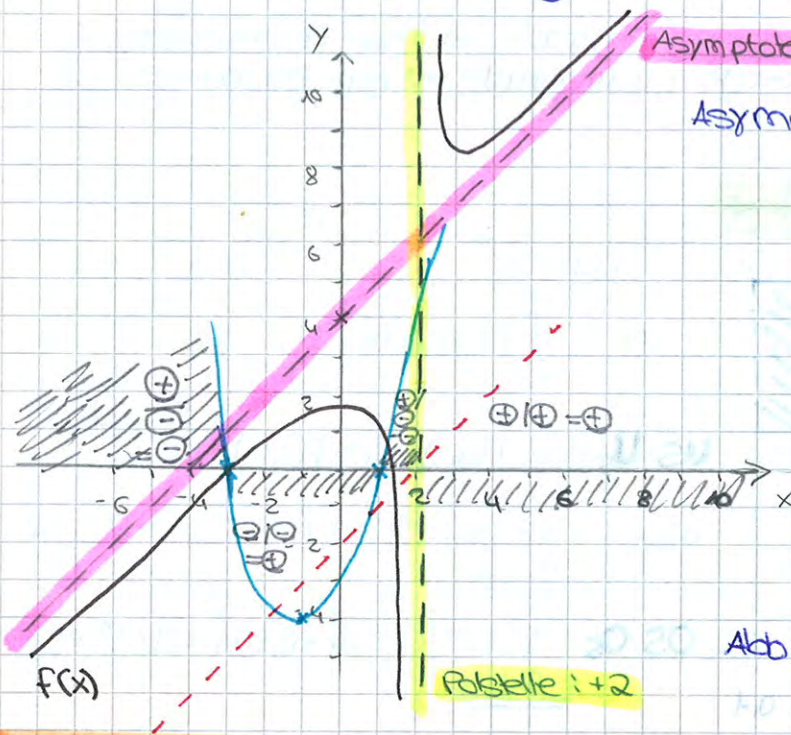 Y
Asymptote
10
Asym
8
6
4
2
⊕
⊖
=⊖
⊕/
⊖
⊖
⊕/⊕=⊕
-6
-4
-2
2
4
6
8
10
x
⊖/⊖
=⊕
-2
-4
f(x)
Polstelle: +2
Abb